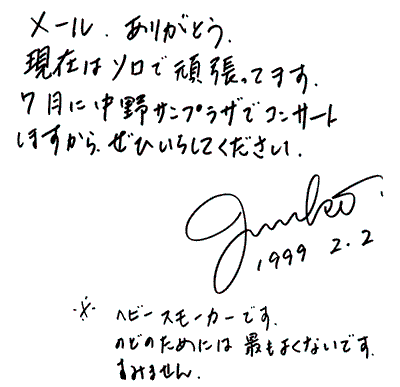 メール、ありがとう、
現在はソロで頑張ってます.
7月に中野サンプラザでコンサート
しますから、ぜひいらしてください.
Junko.
1999 2.2
※ ヘビースモーカーです.
のどのためには最もよくないです.
すみません.